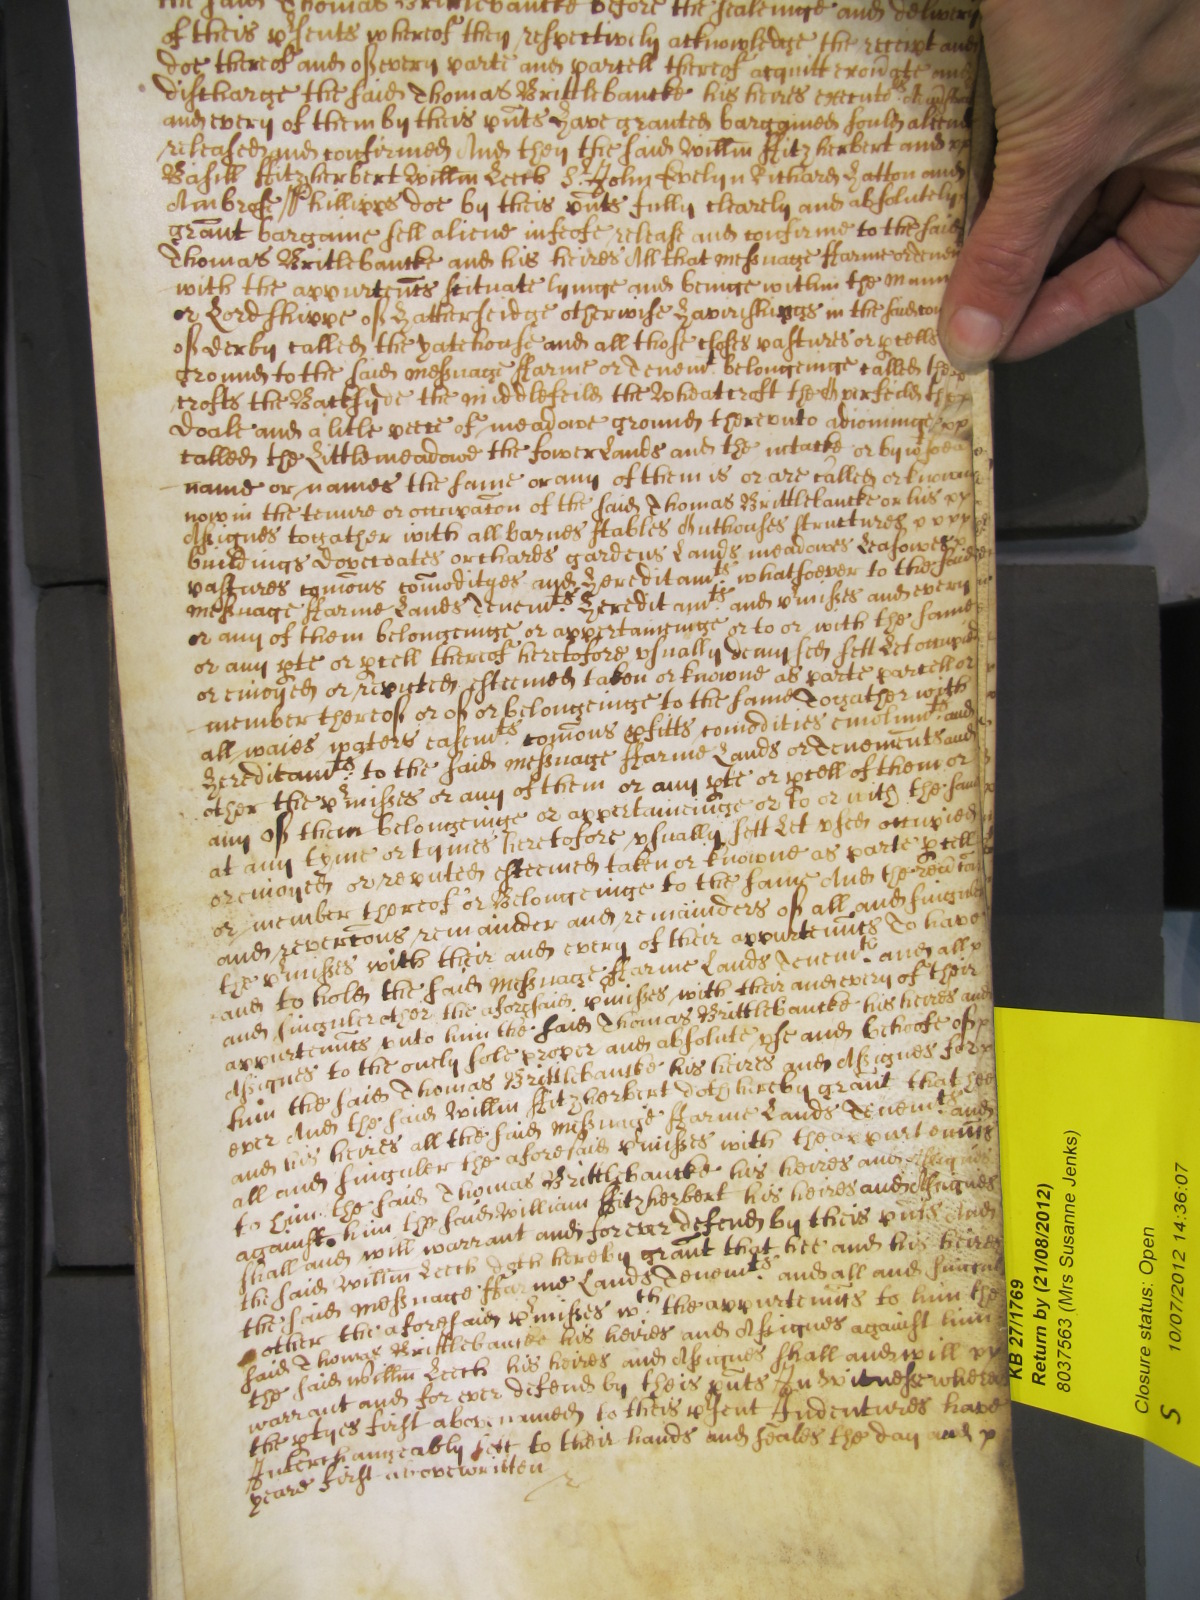 the said Thomas Brittlebancke before the sealeinge and delivery
of theis p'sents whereof they respectively acknowledge the receipt and
doe thereof and of every parte and parcell thereof acquitt exon'ate and
discharge the said Thomas Brittlebancke his heires executo's
and every of them by theis p'nts Have granted bargained sould aliened
released and confirmed And they the said Willm ffitzherbert and
Basill ffitzherbert Willm Leech Sr John Evelyn Richard Hatton and
Ambrose Phillipps doe by theis p'nts fully clearely and absolutely
graunt bargaine sell aliene infeofe release and confirme to the said
Thomas Brittlebancke and his heires All that Messuage ffarme or Tenem
with the appurten'cs scituate lyinge and beinge within the Mann
or Lordshippe of Hatherseidge otherwise in the said cou
of derby called the yatehouse and all those closes pastures or p'cells
ground to the said Messuage ffarme or Tenemt belongeinge called the
crofts the Backsyde the middlefeild the Wheatcroft the Overfeild the
Doale and a litle peece of meadowe ground thereunto adioninge
called the Littlemeadowe the fower Lands and the intacke or by w'soev
name or names the same or any of them is or are called or knowne
now in the tenure or occupac'on of the said Thomas Brittlebancke or his
Assignes togather with all barnes stables Outhouses structures
buildings dovecoates orchards gardens Lands meadowes Leasowes
pastures com'ons com'odityes and Hereditamts whatsoever to the said
Messuage ffarme Lands Tenemts Hereditamts and p'misses and every
or any of them belongeinge or appertaineinge or to or with the same
or any p'te or p'cell thereof heretofore usually demysed sett Let occupied
or emoyed or reputed esteemed taken or knowne as parte parcell or
member thereof or of or belongeinge to the same Togather with
all waies waters easemts com'ons p'fitts comodities emolumts and
Hereditamts to the said Messuage ffarme Lands or Tenements and
other the p'misses or any of them or any p'te or p'cell of them or
any of them belongeinge or appertaineinge or to or with the same
at any tyme or tymes heretofore usually sett Let used occupied
or emoyed or reputed esteemed taken or knowne as parte p'cell
or member thereof or Belongeinge to the same And the
and revercons remainder and remainders of all and singuler
the p'misses with their and every of their appurten'ncs To have
and to hold the said Messuage ffarme Lands Tenemts and all
and singuler other the aforesaid p'misses with their and every of their
appurten'ncs unto him the said Thomas Brittlebancke his heires and
Assignes to the onely sole proper and absolute use and behoofe of
him the said Thomas Brittlebancke his heires and Assignes for
ever And the said Willm ffitzherbert doth hereby graunt that hee
and his heires all the said Messuage ffarme Lands Tenemts and
all and singuler the aforesaid p'misses with the appurten'ncs
to him the said Thomas Brittlebancke his heires and Assignes
against him the said William ffitzherbert his heires and Assignes
shall and will warrant and forever defend by theis p'nts And
the said Willm Leech doth hereby graunt that hee and his heires
the said Messuage ffarme Lands Tenemts and all and singul
other the aforesaid p'misses wth the appurten'ncs to him the
said Thomas Brittlebancke his heires and Assignes against him
the said Willm Leech his heires and Assignes shall and will
warrant and for ever defend by theis p'nts In witnesse whereof
the p'tyes first above named to theis p'sent Indentures have
Interchangeably sett to their hands and seales the day and
yeare first abovewritten
KB 27/1769
Return by (21/08/2012)
8037563 (Mrs Susanne Jenks)
Closure status: Open
S 10/07/2012 14:36:07